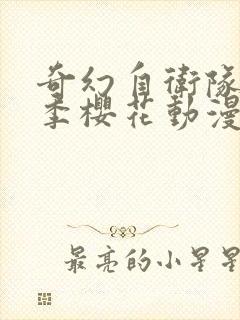 奇幻自衛隊
季櫻花動漫
最亮的小星星